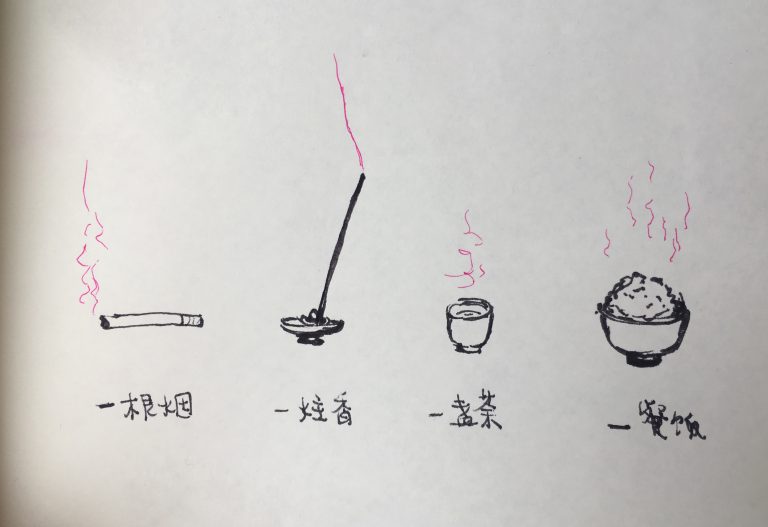 一根烟
一炷香
一盏茶
一餐饭